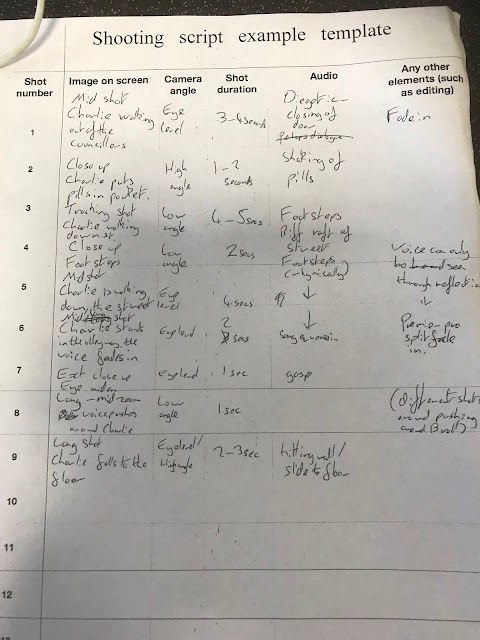 Shooting script example template
Shot number
Image on screen
Camera angle
Shot duration
Audio
Any other elements (such as editing)
1
Mid shot
Charlie walking
out of the
councillors
Eye
level
3-4 seconds
Diegetic -
closing of
door
Fade in
2
Close up
Charlie puts
pills in pocket.
High
angle
1-2
seconds
Shaking of
pills
3
Tracking shot
Charlie walking
down st.
Low
angle
4-5 secs
Footsteps
Riff raff of
street
4
Close up
Footsteps
Low
angle
2 secs
Footsteps
Voice can only
be seen
through reflection
5
Mid shot
Charlie is walking
down the street
Eye
level
4 secs
↓
↓
6
Mid shot
Charlie stands
in the alleyway, the
voice fades in
Eye level
2
secs
↓
Premie-pro
split fade
in.
7
Ext close up
Eye widen
Eye level
1 sec
gasp
8
Long - mid zoom
voice pushes
around Charlie
Low
angle
1 sec
(different shots
around pushing
9
Long shot
Charlie falls to the
floor
Eye level/
High angle
2-3 sec
hitting wall/
slide to floor
10
11
12